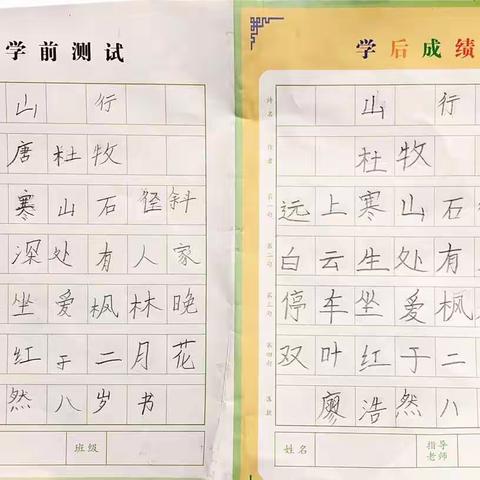 学前测试
山 行
唐 杜 牧
寒 山 石 径 斜
深 处 有 人 家
坐 爱 枫 林 晚
红 于 二 月 花
然 八 岁 书
班级
学后成绩
诗名 山 行
作者 杜 牧
第一句 远 上 寒 山 石
第二句 白 云 生 处 有
第三句 停 车 坐 爱 枫
第四句 双 叶 红 于 二
落款 廖 浩 然 八
姓名 指导老师